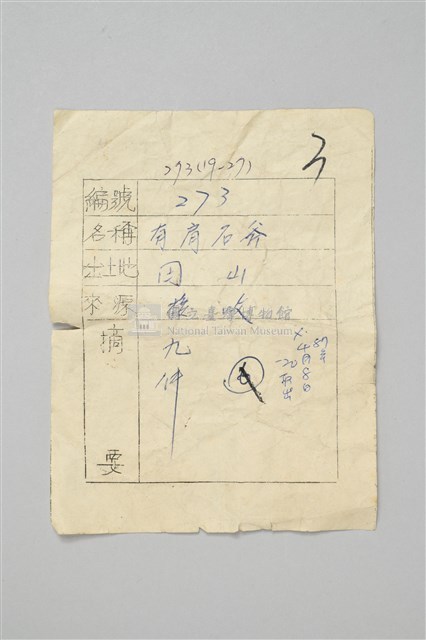 3
273(19-27)
編號 273
名稱 有肩石斧
出土地 圓山
來源 採收
國立臺灣博物館
National Taiwan Museum
摘要 九件
87年
4月8日
取出